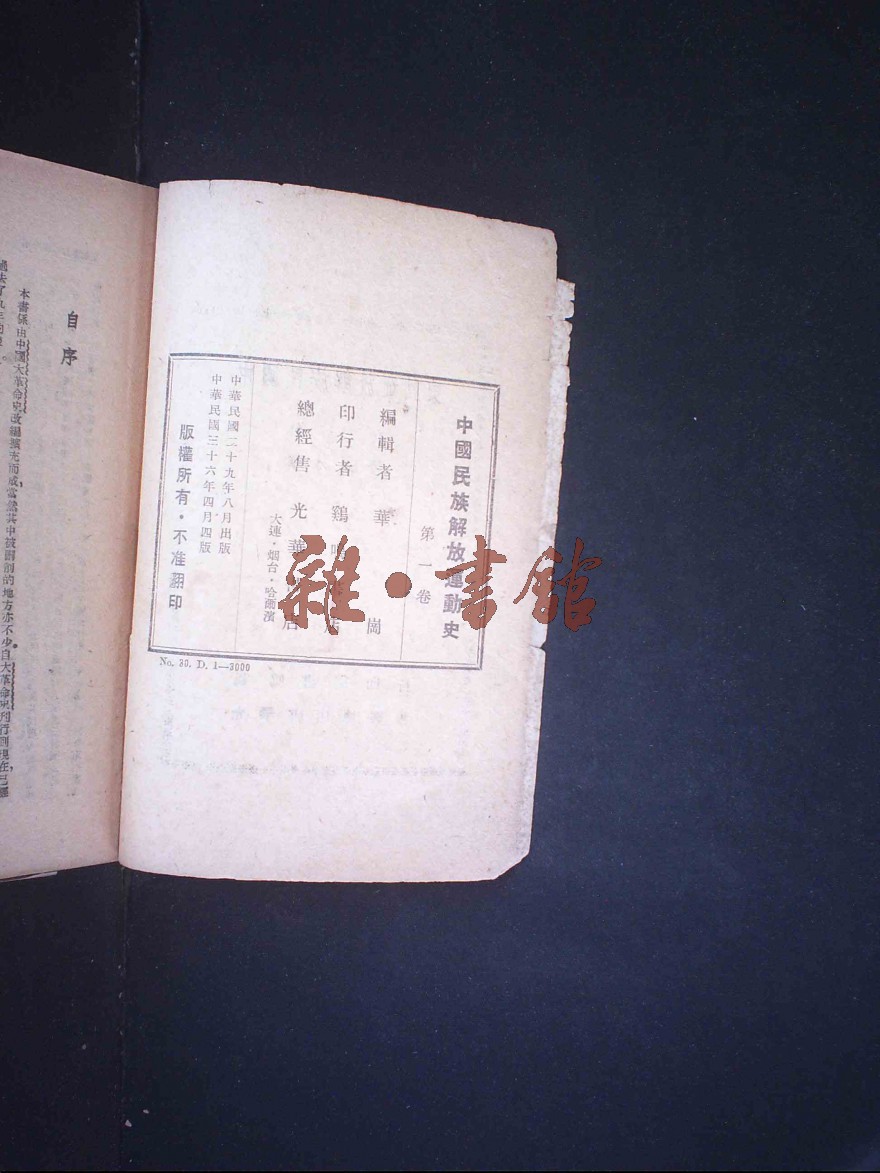 中國民族解放運動史
第一卷
編輯者 華 崗
印行者 鷄
總經售 光華 店
大連·烟台·哈爾濱
中華民國二十九年八月出版
中華民國三十六年四月四版
版權所有·不准翻印
No. 30. D. 1—3000
雜·書館
自序
本書係由中國大革命史改編擴充而成,當然其中被刪削的地方亦不少。自大革命史刊行到現在,已經